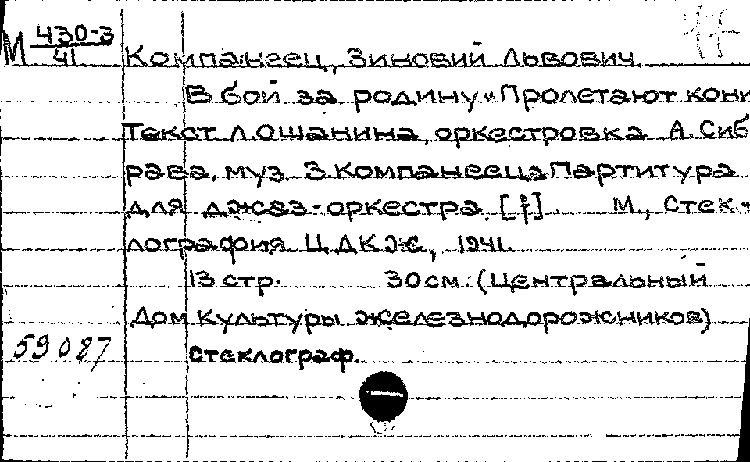 М 430-3
41
Компанеец, Зиновий Львович.
В бой за родину "Пролетают кони
Текст Л. Ошанина, оркестровка А. Сиб
рава, муз. З. Компанеецa Партитура
для джаз-оркестра. М., Стек-
лография Ц Д К Ж, 1941.
13 стр. 30 см. (Центральный
Дом Культуры железнодорожников)
59087 Стеклограф.